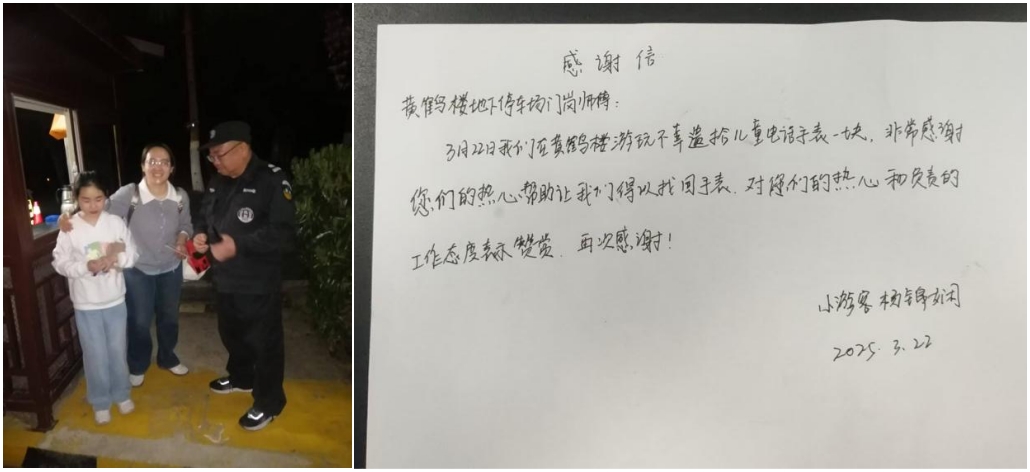 感谢信
黄鹤楼地下停车场门岗师傅：
3月22日我们在黄鹤楼游玩不幸遗拾儿童电话手表一块，非常感谢
您们的热心帮助让我们得以找回手表，对您们的热心和负责的
工作态度表示赞赏，再次感谢！
小游客 杨锦闲
2025.3.22